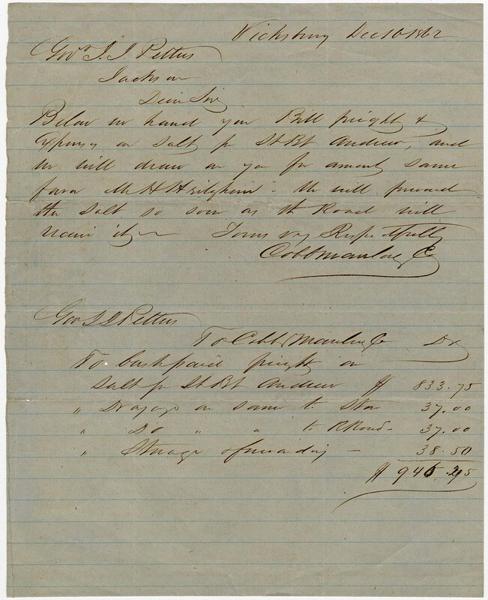 Vicksburg Dec 10 1862
Gov. J. J. Pettus
Jackson
Dear Sir
Below we hand you Bill freight &
Expenses on Salt pr St Bt Andrew, and
we will draw on you for amount same
favor We will forward
the Salt so soon as the Road will
receive it Yours very Respectfully
Cobb Manlove & Co
Gov J J Pettus
To Cobb Manlove & Co Dr
To Cash paid freight on
Salt pr St Bt Andrew $ 833.75
" Drayage on same to Store 37.00
" Do " " to RRoad - 37.00
" Storage & forwarding - 38.50
$ 946.25